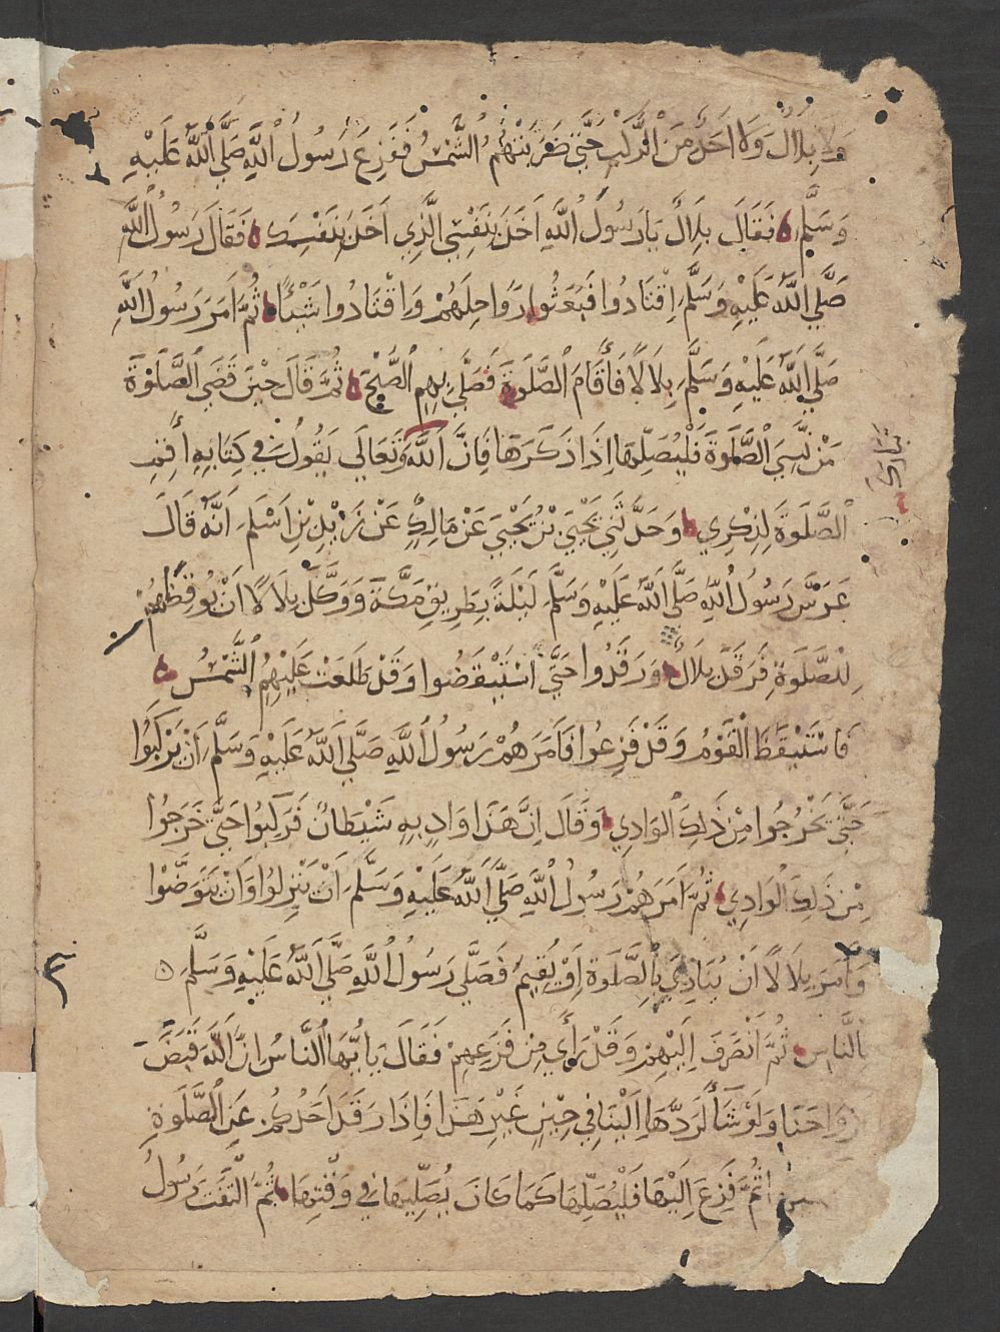 وَلَا بِلَالٌ وَلَا اَحَدٌ مِنَ الرَّكْبِ حَتَّى ضَرَبَتْهُمُ الشَّمْسُ فَفَزِعَ رَسُولُ اللَّهِ صَلَّى اللَّهُ عَلَيْهِ
وَسَلَّمَ فَقَالَ بِلَالٌ يَا رَسُولَ اللَّهِ اَخَذَ بِنَفْسِي الَّذِي اَخَذَ بِنَفْسِكَ فَقَالَ رَسُولُ اللَّهِ
صَلَّى اللَّهُ عَلَيْهِ وَسَلَّمَ اِقْتَادُوا فَبَعَثُوا رَوَاحِلَهُمْ وَاقْتَادُوا شَيْئًا ثُمَّ اَمَرَ رَسُولُ اللَّهِ
صَلَّى اللَّهُ عَلَيْهِ وَسَلَّمَ بِلَالًا فَأَقَامَ الصَّلَوةَ فَصَلَّى بِهِمِ الصُّبْحَ ثُمَّ قَالَ حِيْنَ قَضَى الصَّلَوةَ
مَنْ نَسِيَ الصَّلَوةَ فَلْيُصَلِّهَا اِذَا ذَكَرَهَا فَاِنَّ اللَّهَ وَتَعَالَى يَقُولُ فِي كِتَابِهِ أَقِمِ
تبارك
الصَّلَوةَ لِذِكْرِي وَحَدَّثَنِي يَحْيَى بْنُ يَحْيَى عَنْ مَالِكٍ عَنْ زَيْدِ بْنِ اَسْلَمَ اَنَّهُ قَالَ
عَرَّسَ رَسُولُ اللَّهِ صَلَّى اللَّهُ عَلَيْهِ وَسَلَّمَ لَيْلَةً بِطَرِيقِ مَكَّةَ وَوَكَّلَ بِلَالًا اَنْ يُوقِظَهُمْ
لِلصَّلَوةِ فَرَقَدَ بِلَالٌ وَرَقَدُوا حَتَّى اسْتَيْقَضُوا وَقَدْ طَلَعَتْ عَلَيْهِمُ الشَّمْسُ
فَاسْتَيْقَظَ الْقَوْمُ وَقَدْ فَزِعُوا فَاَمَرَهُمْ رَسُولُ اللَّهِ صَلَّى اللَّهُ عَلَيْهِ وَسَلَّمَ اَنْ يَرْكَبُوا
حَتَّى يَخْرُجُوا مِنْ ذَلِكَ الْوَادِي وَقَالَ اِنَّ هَذَا وَادٍ بِهِ شَيْطَانٌ فَرَكِبُوا حَتَّى خَرَجُوا
مِنْ ذَلِكَ الْوَادِي ثُمَّ اَمَرَهُمْ رَسُولُ اللَّهِ صَلَّى اللَّهُ عَلَيْهِ وَسَلَّمَ اَنْ يَنْزِلُوا وَاَنْ يَتَوَضَّئُوا
وَاَمَرَ بِلَالًا اَنْ يُنَادِيَ بِالصَّلَوةِ اَوْ يُقِيمَ فَصَلَّى رَسُولُ اللَّهِ صَلَّى اللَّهُ عَلَيْهِ وَسَلَّمَ
بِالنَّاسِ ثُمَّ انْصَرَفَ اِلَيْهِمْ وَقَدْ رَأَى مِنْ فَزَعِهِمْ فَقَالَ يَا أَيُّهَا النَّاسُ اِنَّ اللَّهَ قَبَضَ
اَرْوَاحَنَا وَلَوْ شَآءَ لَرَدَّهَا اِلَيْنَا فِي حِيْنٍ غَيْرِ هَذَا فَاِذَا رَقَدَ اَحَدُكُمْ عَنِ الصَّلَوةِ
ثُمَّ فَزِعَ اِلَيْهَا فَلْيُصَلِّهَا كَمَا كَانَ يُصَلِّيهَا فِي وَقْتِهَا ثُمَّ الْتَفَتَ رَسُولُ